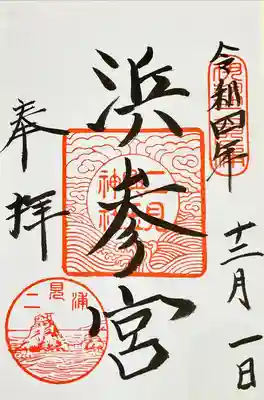 令和四年
十二月一日
浜参宮
奉拝
二見
神社
二見浦